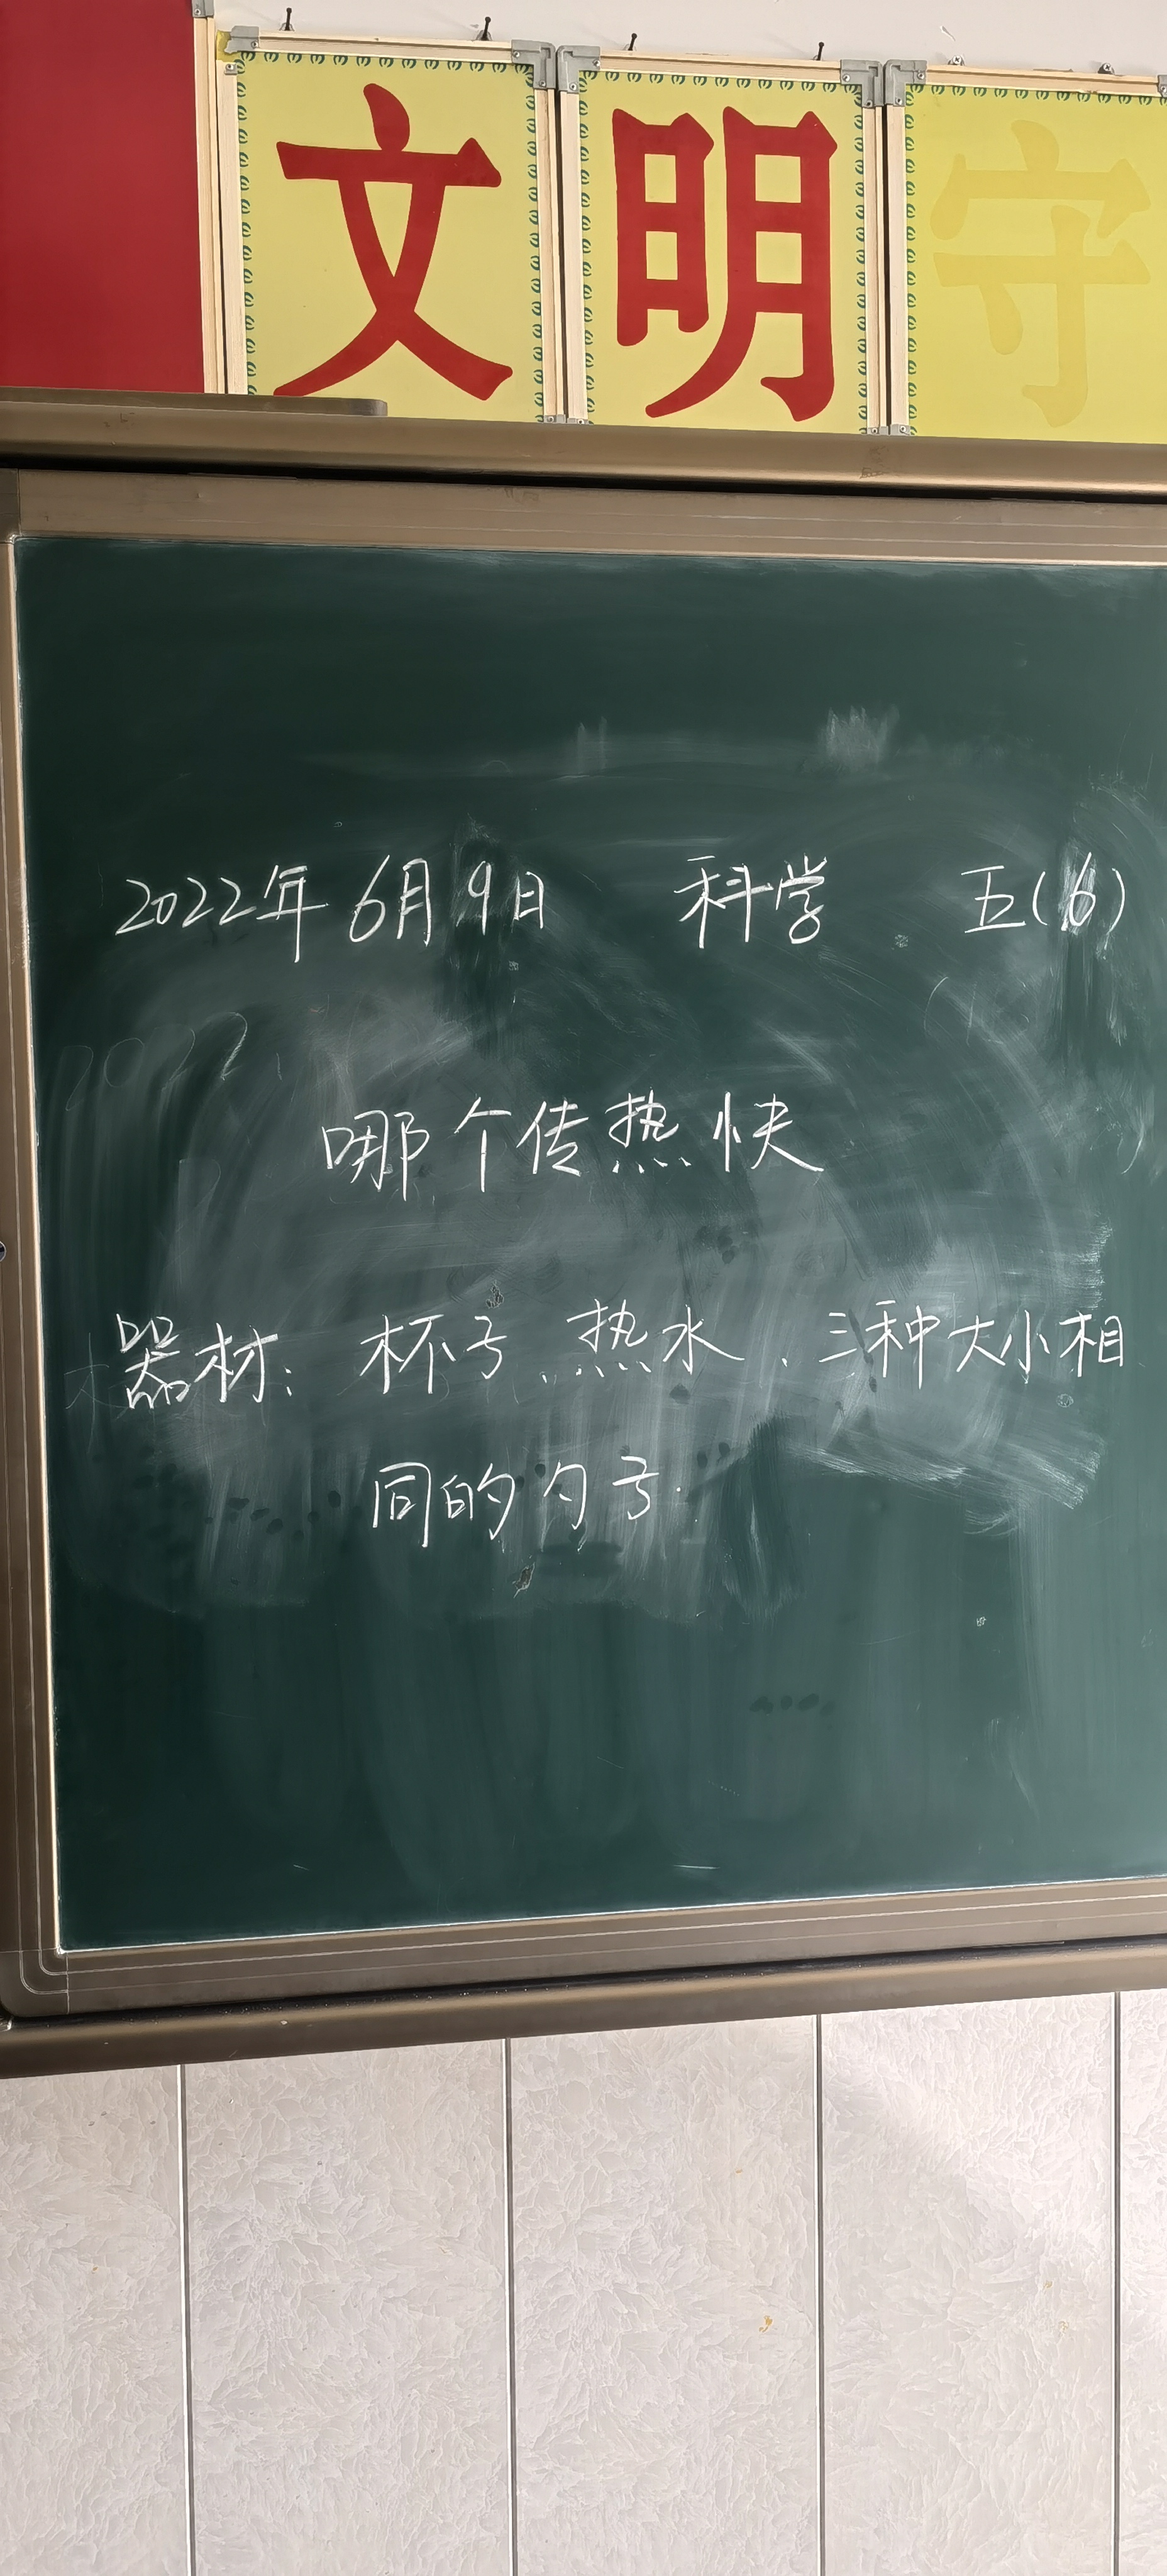 文明守
2022年6月9日 科学 五(6)
2022.
哪个传热快
器材：杯子、热水、三种大小相
同的勺子.